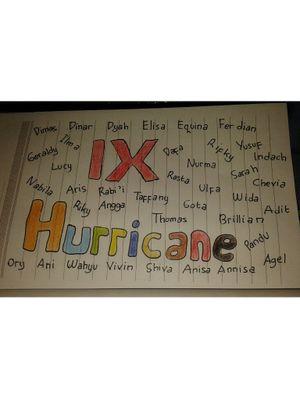 Dimas Dinar Dyah Elisa Equina Ferdian
Geraldy Ilma IX Dafa Rifky Yusuf
Lucy Nurma Indach
Nabila Aris Rabi'i Rasta Ulfa Sarah Chevia
Riky Angga Taftang Gota Wida Adit
Thomas Brillian
Hurricane Pandu
Ory Ani Wahyu Vivin Shiva Anisa Annisa Agel